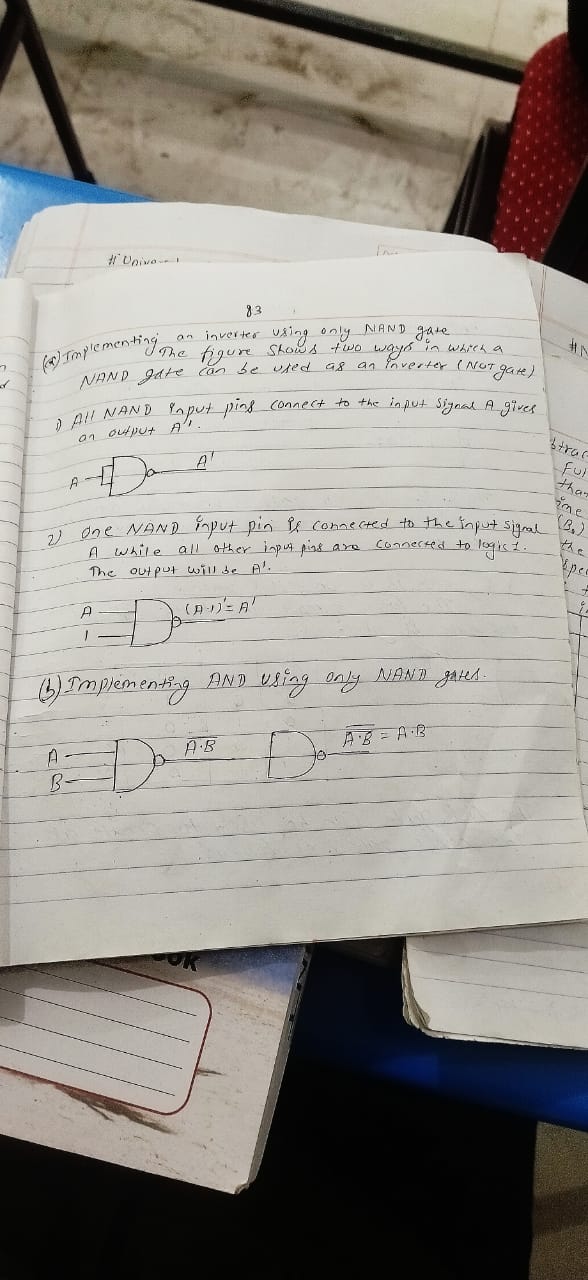 # Univer
83
(a) Implementing an inverter using only NAND gate
The figure shows two ways in which a
NAND gate can be used as an inverter (NOT gate)
1) All NAND input pins connect to the input signal A gives
an output A'.
A A'
2) One NAND input pin is connected to the input signal
A while all other input pins are connected to logic 1.
The output will be A'.
A (A·1)' = A'
1
(b) Implementing AND using only NAND gates.
A A·B A·B = A·B
B
# N
btrac
Ful
than
the
spe
ok